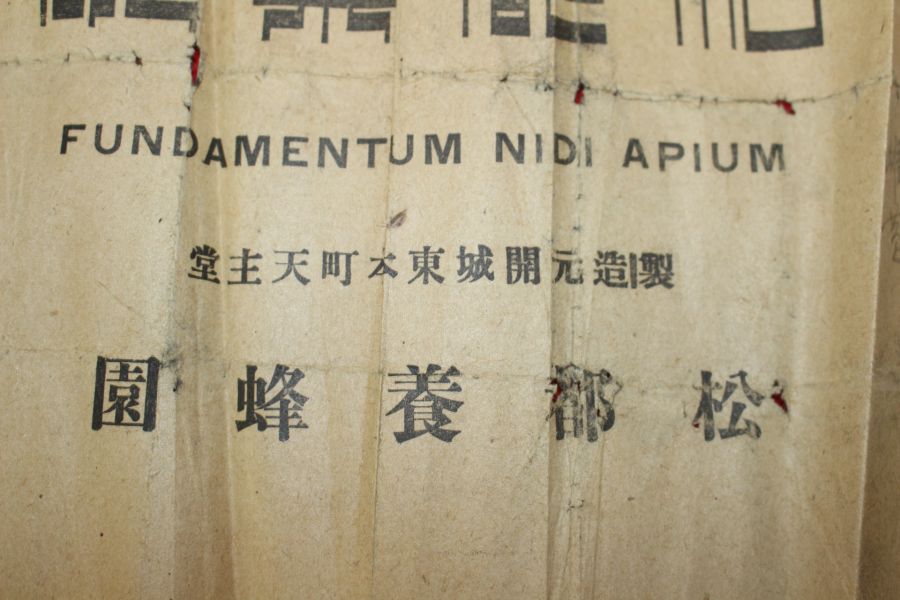 FUNDAMENTUM NIDI APIUM
製造元開城東本町天主堂
松都養蜂園